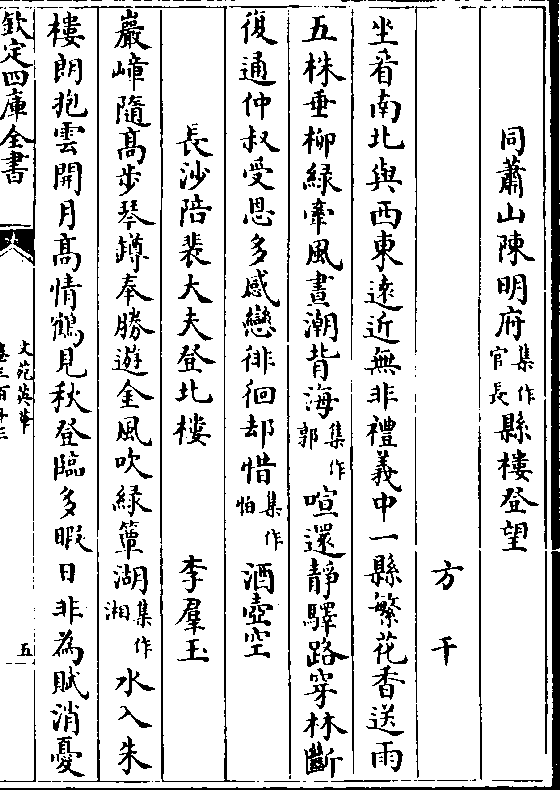 同蕭山陳明府集作官長縣樓登望
方干
坐看南北與西東逺近無非禮義中一縣繁花香送雨
五株垂柳綠牽風晝潮背海集作郭喧還靜驛路穿林斷
復通仲叔受恩多感戀徘徊却惜集作怕酒壺空
長沙陪裴大夫登北樓
李羣玉
巖嶂隨髙步琴罇奉勝遊金風吹綠簟湖集作湘水入朱
樓朗抱雲開月髙情鶴見秋登臨多暇日非為賦消憂
欽定四庫全書
文苑英華
五